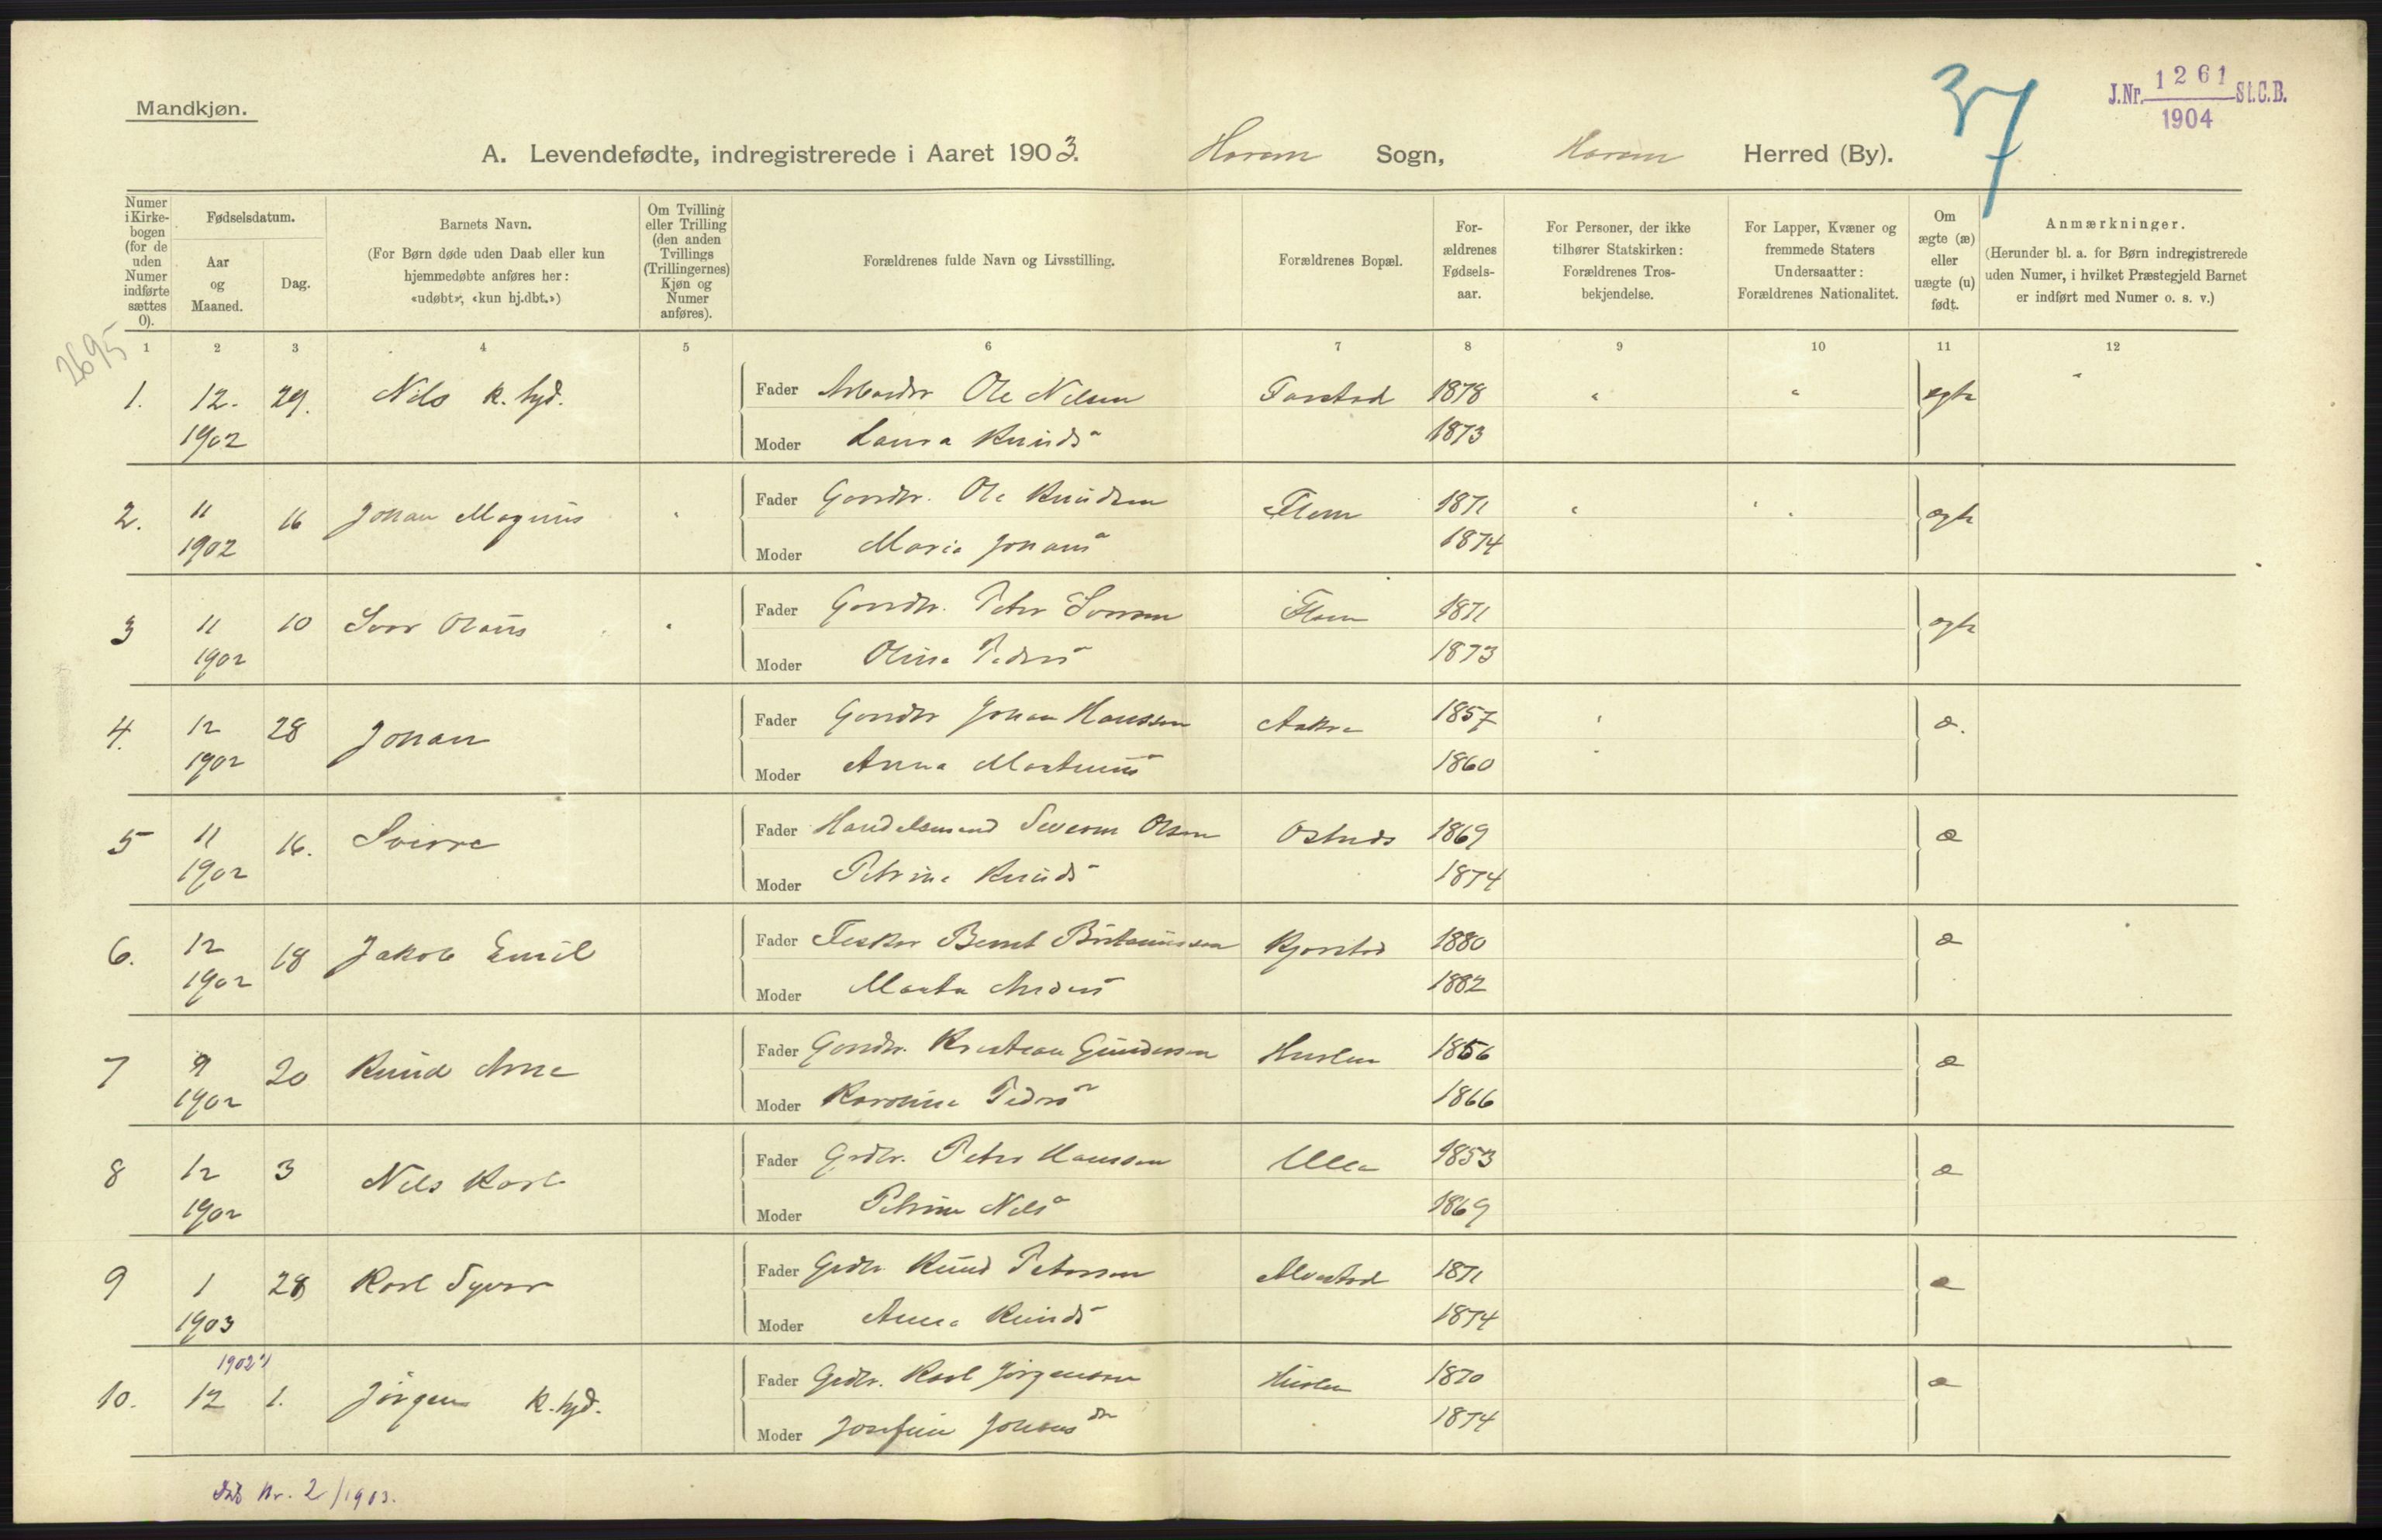 Mandkjøn.
A. Levendefødte, indregistrerede i Aaret 1903. Haram Sogn, Haram Herred (By).
37
J.Nr. 1261 St.C.B.
1904
Numer i Kirkebogen (for de uden Numer indførte sættes 0).
Fødselsdatum.
Aar og Maaned.
Dag.
Barnets Navn.
(For Børn døde uden Daab eller kun hjemmedøbte anføres her: «udøbt», «kun hj.dbt.»)
Om Tvilling eller Trilling (den anden Tvillings (Trillingernes) Kjøn og Numer anføres).
Forældrenes fulde Navn og Livsstilling.
Forældrenes Bopæl.
Forældrenes Fødselsaar.
For Personer, der ikke tilhører Statskirken: Forældrenes Trosbekjendelse.
For Lapper, Kvæner og fremmede Staters Undersaatter: Forældrenes Nationalitet.
Om ægte (æ) eller uægte (u) født.
Anmærkninger.
(Herunder bl. a. for Børn indregistrerede uden Numer, i hvilket Præstegjeld Barnet er indført med Numer o. s. v.)
2695
1 2 3 4 5 6 7 8 9 10 11 12
1. 12. 29. Nils k. hjd. Fader Arbeider Ole Nilsen 1878 " " ægte "
1902 Moder Laura Knudsd 1873
2. 11 16 Johan Magnus Fader Gaardbr. Ole Knudsen Flem 1871 ægte
1902 Moder Marie Johansd 1874
3 11 10 Olaus Fader Gaardbr. Peter Flem 1871 ægte
1902 Moder Oline Pedersd 1873
4. 12 28 Johan Fader Gaardbr Johan Hanssen Aakre 1857 æ.
1902 Moder Anna Martinusd 1860
5 11 16. Sverre Fader Handelsmand Severin Olsen Ostnes 1869 æ
1902 Moder Petrine Knudsd 1874
6. 12 18 Jakob Emil Fader Fisker Bernt Kjerstad 1880 æ
1902 Moder Marta Andersd 1882
7 9 20 Knud Arne Fader Gaardbr. Kristian Gundersen 1856 æ
1902 Moder Karoline Pedersd 1866
8 12 3 Nils Karl Fader Grdbr. Peter Hanssen Ulla 1853 æ
1902 Moder Petrine Nilsd 1869
9 1 28 Karl Syver Fader Grdbr Knud Peterssen Alvestad 1871 æ
1903 Moder Anna Knudsd 1874
1902
10. 12 1. Jörgen k. hjd. Fader Grdbr. Karl Jörgensen 1870 æ
Moder Josefine Johansdr 1874
Nr. 2/1903.